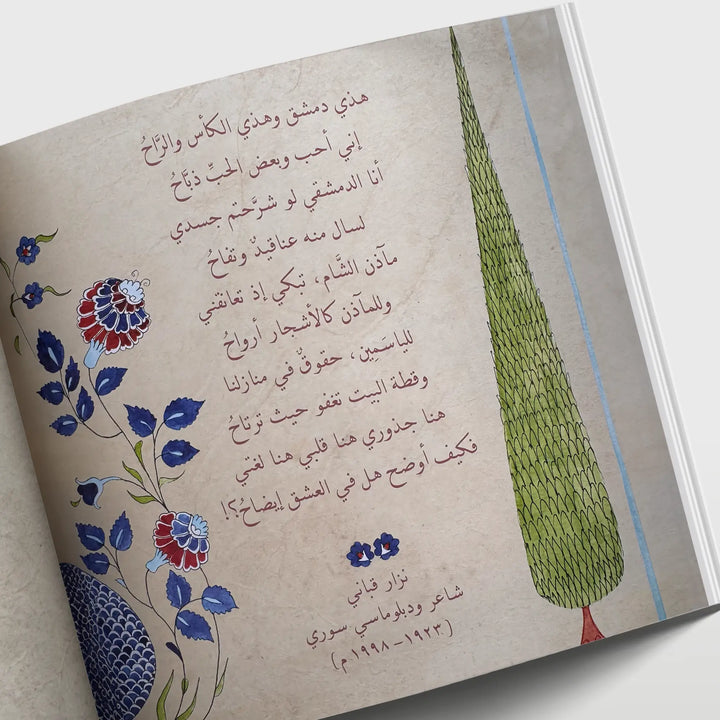 هذي دمشق وهذي الكأس والرَّاحُ
إني أحب وبعض الحبِّ ذبَّاحُ
أنا الدمشقي لو شرَّحتم جسدي
لسال منه عناقيدٌ وتفاحُ
مآذن الشَّام، تبكي إذ تعانقني
وللمآذن كالأشجار أرواحُ
للياسَمِين، حقوقٌ في منازلنا
وقطة البيت تغفو حيث ترتاحُ
هنا جذوري هنا قلبي هنا لغتي
فكيف أوضح هل في العشق إيضاحُ؟!
نزار قباني
شاعر ودبلوماسي سوري
(١٩٢٣-١٩٩٨ م)